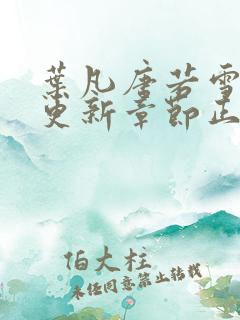 葉凡唐若雪
更新章節正
伯大柱
未经同意禁止转载